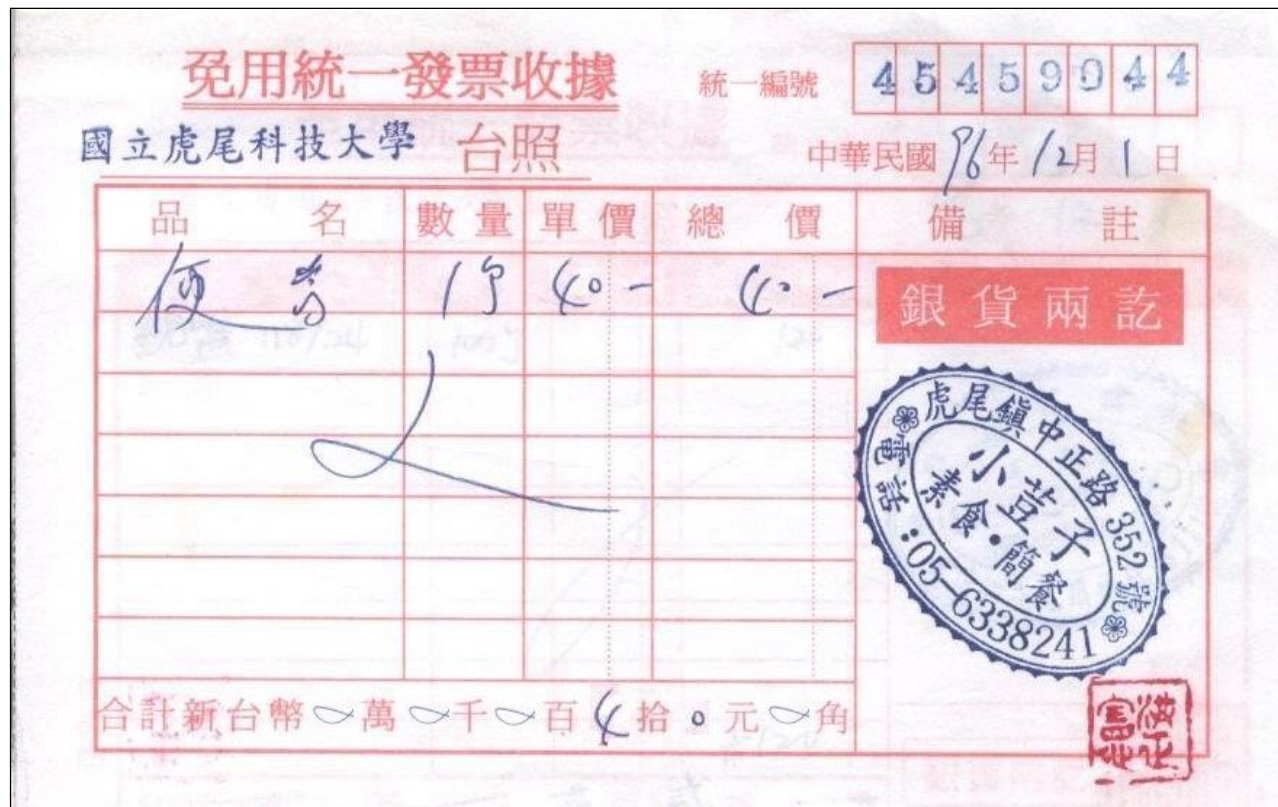 免用統一發票收據
統一編號 45459944
國立虎尾科技大學 台照
中華民國 96年 12月 1日
品名 數量 單價 總價 備註
便當 1个 40- 40-
銀貨兩訖
虎尾鎮中正路352號
小荳子
素食•簡餐
電話:05-6338241
合計新台幣 0萬 0千 0百 4拾 0元 0角